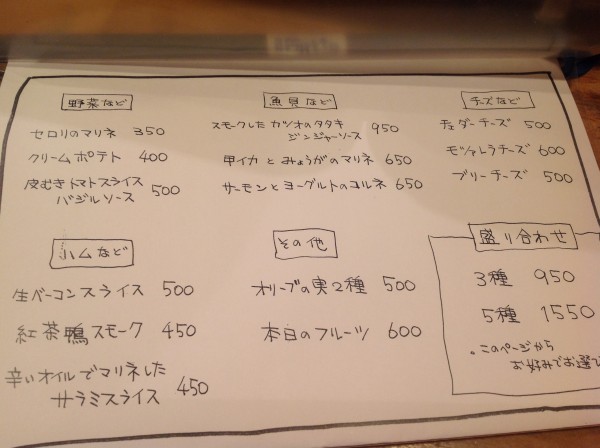 野菜など
セロリのマリネ 350
クリームポテト 400
皮むきトマトスライス
バジルソース 500
魚貝など
スモークした カツオのタタキ
ジンジャーソース 950
甲イカ と みょうがのマリネ 650
サーモンとヨーグルトのコルネ 650
チーズなど
チェダーチーズ 500
モッツァレラチーズ 600
ブリーチーズ 500
ハムなど
生ベーコンスライス 500
紅茶鴨スモーク 450
辛いオイルでマリネした
サラミスライス 450
その他
オリーブの実2種 500
本日のフルーツ 600
盛り合わせ
3種 950
5種 1550
。このページから
お好みでお選び